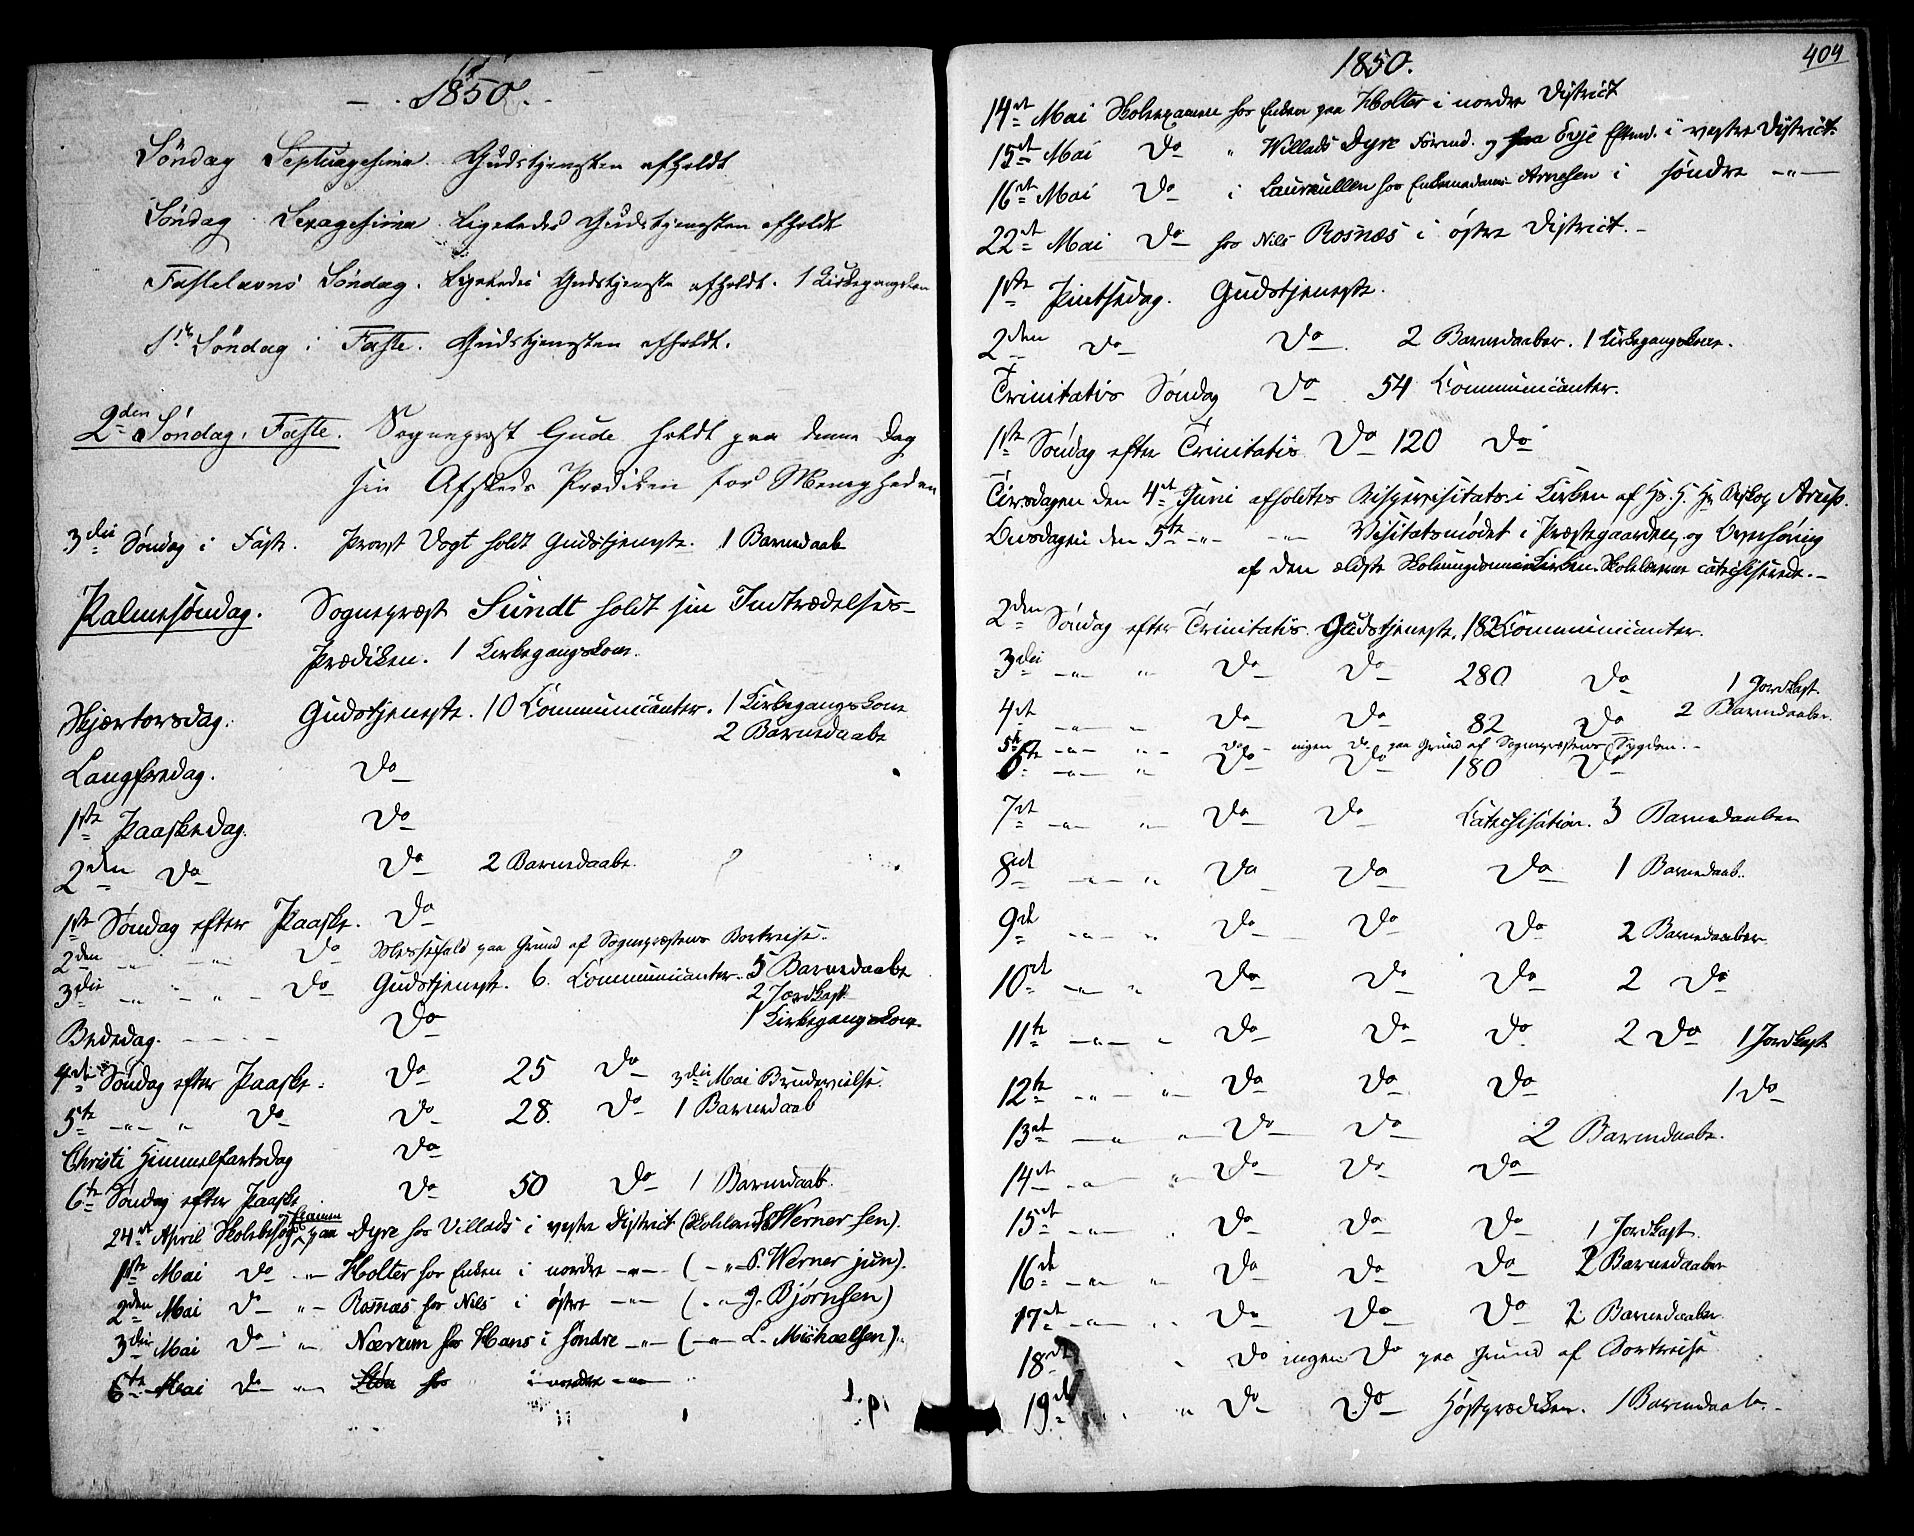 1850.
Søndag Septuagesima. Gudstjenesten afholdt
Søndag Sexagesima. Ligeledes Gudstjenesten afholdt
Fastelavns Søndag. Ligeledes Gudstjeneste afholdt. 1 Kirkegangskone
1ste Søndag i Faste. Gudstjenesten afholdt.
2den Søndag i Faste. Sognepræst Gude holdt paa denne Dag
sin Afskeds Prædiken for Menigheden
3die Søndag i Faste. Provst Vogt holdt Gudstjeneste. 1 Barnedaab
Palmesøndag. Sognepræst Sundt holdt sin Indtrædelses-
Prædiken. 1 Kirkegangskone.
Skjærtorsdag. Gudstjeneste. 10 Communicanter. 1 Kirkegangskone
2 Barnedaabe
Langfredag. Do
1ste Paaskedag. Do
2den Do Do 2 Barnedaabe.
1ste Søndag efter Paaske. Do
2den -"- -"- Do Messefald paa Grund af Sognepræstens Bortreise.
3die -"- " - Do Gudstjeneste. 6. Communicanter. 5 Barnedaabe
2 Jordkast
Bededag. - - - - Do 1 Kirkegangskone.
4de Søndag efter Paaske. Do 25 Do 3die Mai Brudevielse.
5te -"- " Do Do 28. Do 1 Barnedaab
Christi Himmelfartsdag Do
6te Søndag efter Paaske Do 50 Do 1 Barnedaab.
24de April Skolebesøg Examen paa Dyre hos Villads i vestre District (Skolelærer Werner sen).
1ste Mai Do -"- Holter hos Enken i nordre -"- (-"- P. Werner jun).
2den Mai Do "- Rosnæs hos Nils i østre -"- (-"- J. Bjørnsen)
3die Mai Do " Nærum hos Hans i søndre -"- (-"- L. Michaelsen).
6te Mai Do -"- hos i nordre -"-
1850.
404
14de Mai Skoleexamen hos Enken paa Holter i nordre District
15de Mai Do " Willads Dyre Formd. og paa Evje Efterm. i vestre District.
16de Mai Do i Laurkullen hos Enkemadame Arnesen i søndre -"-
22de Mai Do hos Nils Rosnæs i østre District.-
1ste Pintsedag. Gudstjeneste.
2den Do Do 2 Barnedaaber. 1 Kirkegangskone.
Trinitatis Søndag Do 54 Communicanter.
1ste Søndag efter Trinitatis Do 120 Do
Tirsdagen den 4de Juni afholdtes Bispevisitats i Kirken af Hs. H. Hr. Biskop Arup.
Onsdagen den 5te -"- -"- Visitatsmødet i Præstegaarden, og Overhøring
af den ældste Skoleungdom i Kirken. Skolelærerne catechiserede.-
2den Søndag efter Trinitatis. Gudstjeneste, 182 Communicanter.
3die -"- " Do Do 280 Do 1 Jordkast.
4de -"- " Do Do 82 Do 2 Barnedaaber.
5te -"- "- Do - ingen Do paa Grund af Sognepræstens Sygdom.-
6te -"- " Do Do 180 Do
7de -"- " Do Do Catechisation. 3 Barnedaaber
8de -"- " Do Do Do 1 Barnedaab..
9de -"- " Do Do Do 2 Barnedaaber
10de -"- " Do Do Do 2 Do
11te -"- " Do Do Do 2 Do 1 Jordkast
12te -"- "- Do Do Do 1 Do
13de -"- "- Do Do 2 Barnedaabe.
14de -"- " Do Do Do
15de -"- " Do Do Do 1 Jordkast.
16de -"- " Do Do Do 2 Barnedaaber
17de -"- " Do Do Do 2 Barnedaaber
18de " Do ingen Do paa Grund af Bortreise
19de " " Do Do Høstprædiken. 1 Barnedaab.-